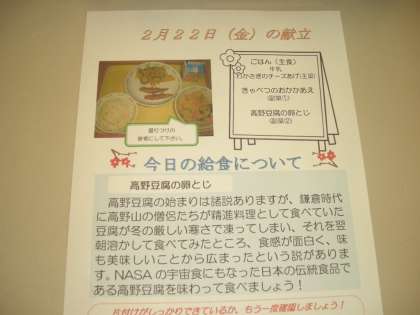 2月22日(金)の献立
ごはん(主食)
牛乳
わかさぎのチーズあげ(主菜)
きゃべつのおかかあえ
(副菜①)
高野豆腐の卵とじ
(副菜②)
盛りつけの
参考にして下さい。
今日の給食について
高野豆腐の卵とじ
高野豆腐の始まりは諸説ありますが、鎌倉時代
に高野山の僧侶たちが精進料理として食べていた
豆腐が冬の厳しい寒さで凍ってしまい、それを翌
朝溶かして食べてみたところ、食感が面白く、味
も美味しいことから広まったという説がありま
す。NASAの宇宙食にもなった日本の伝統食品で
ある高野豆腐を味わって食べましょう!
片付けがしっかりできているか、もう一度確認しましょう!